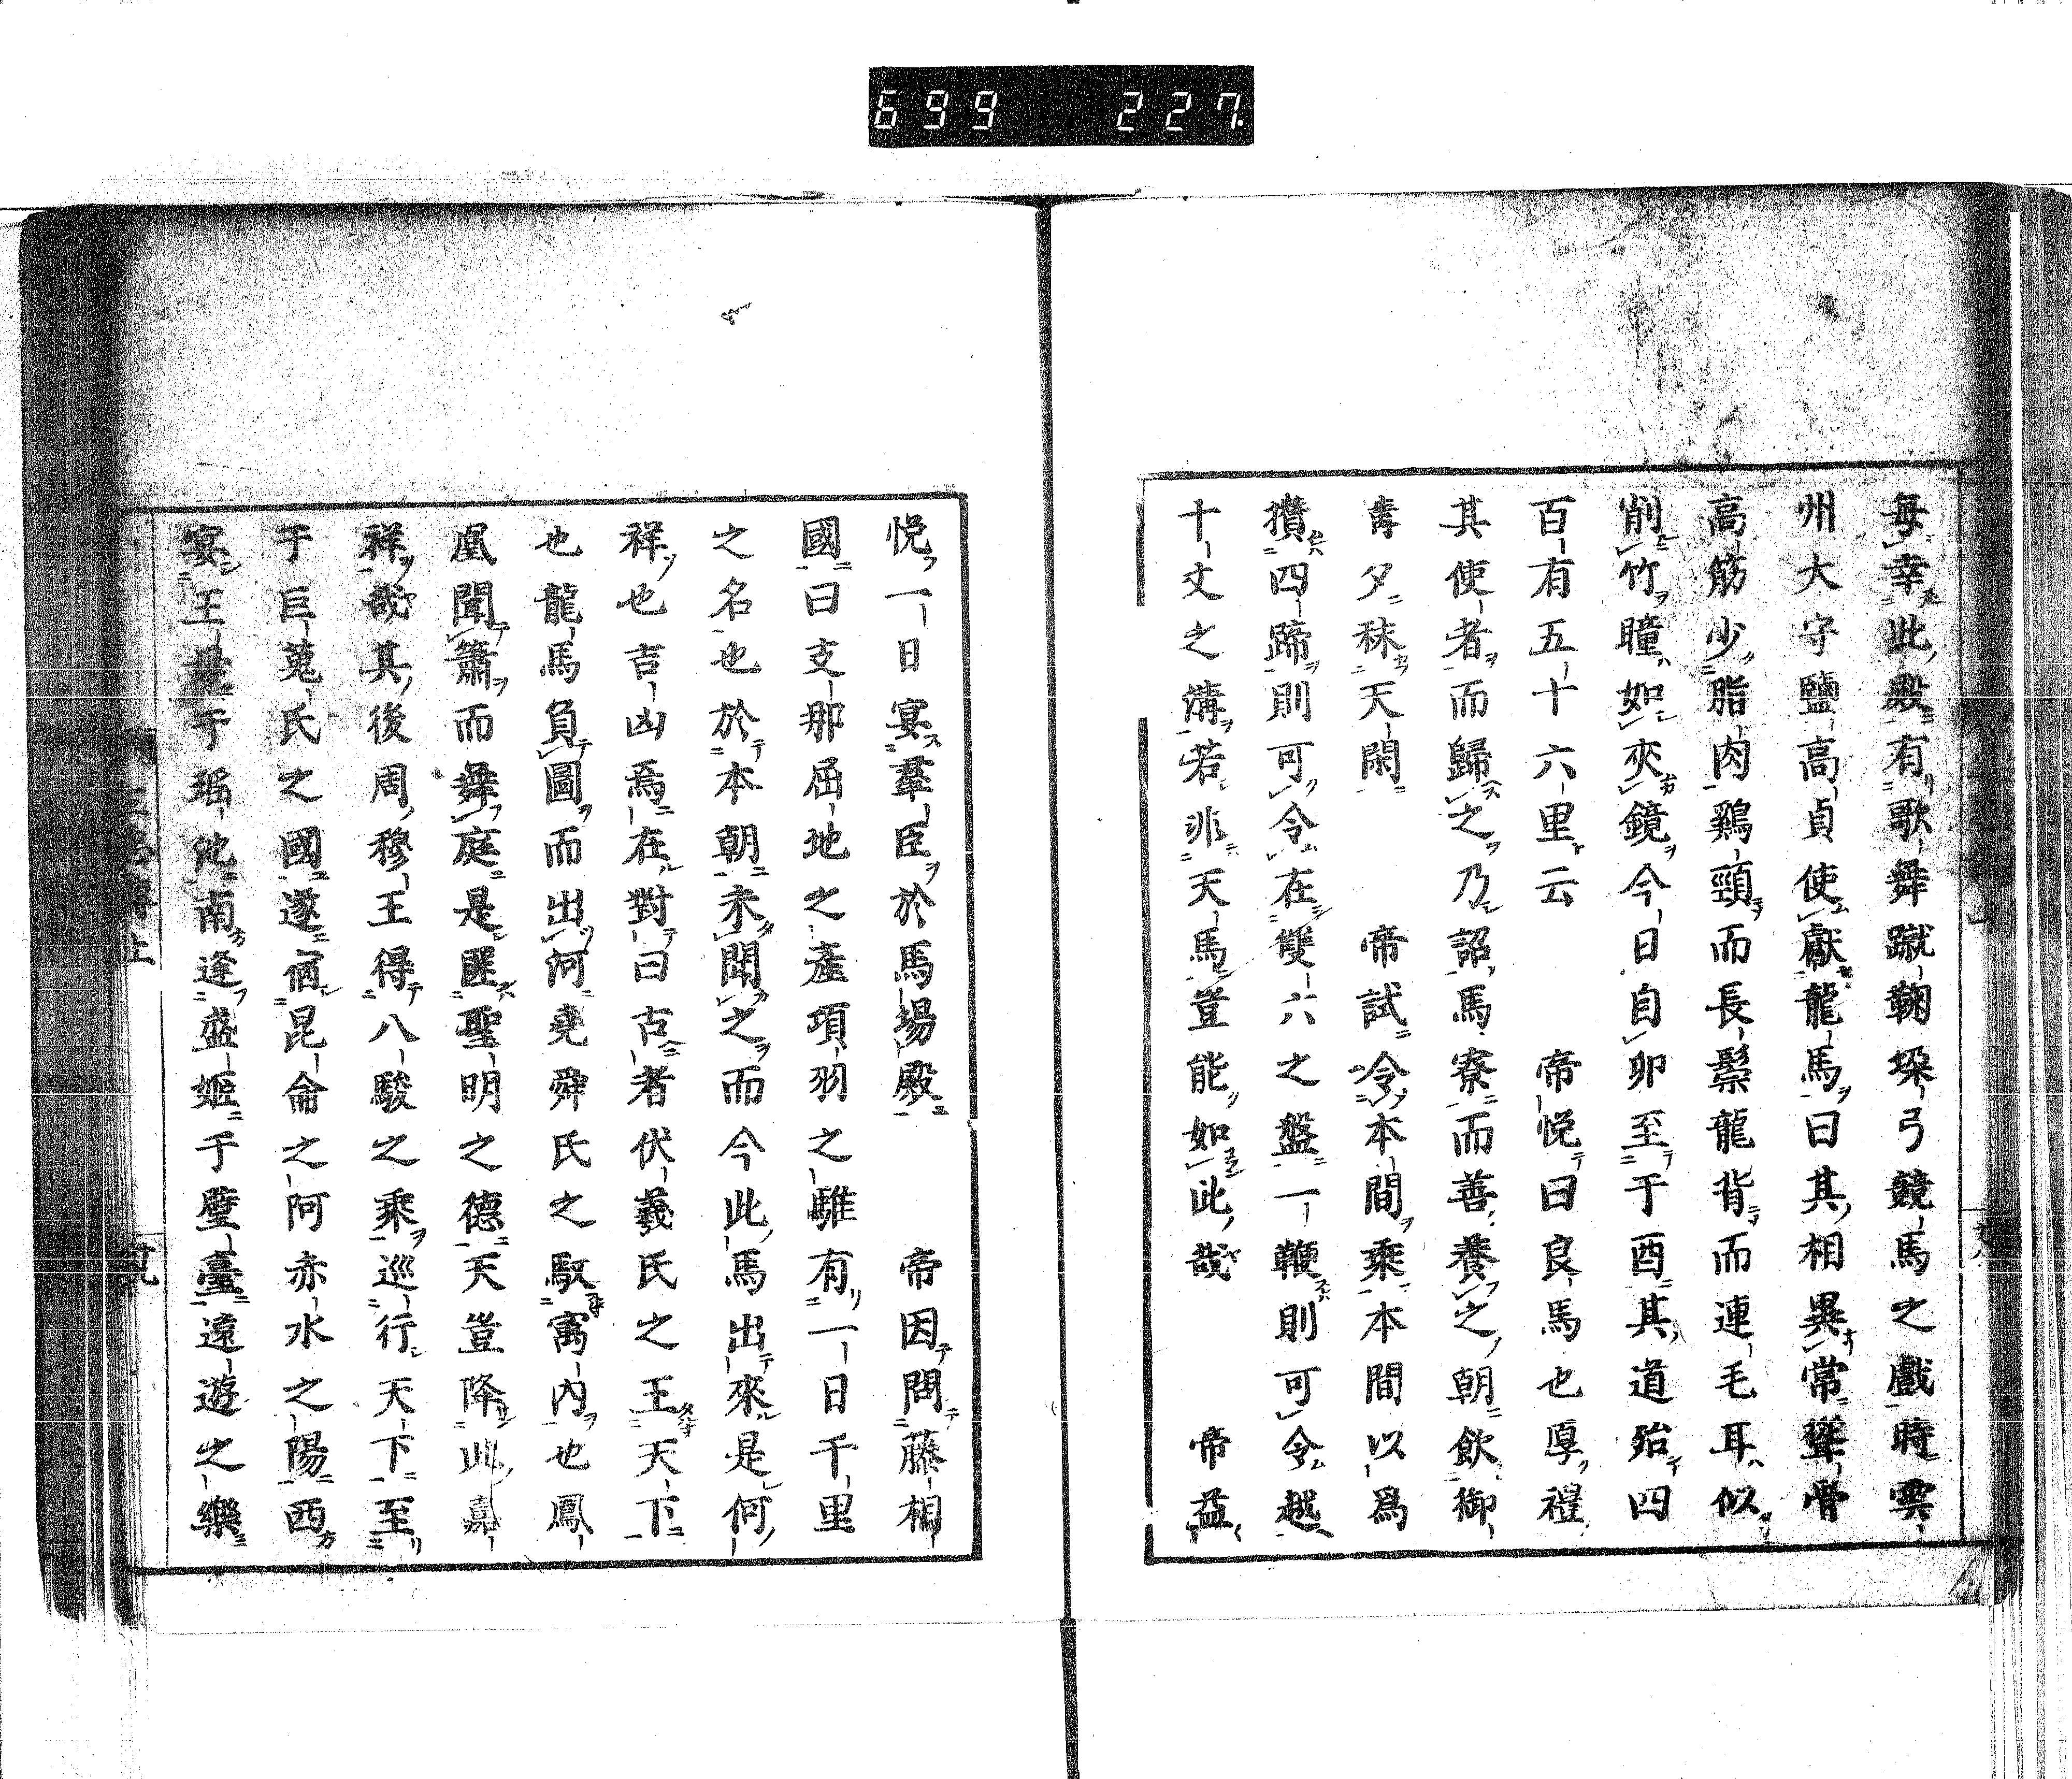 699 227.
毎幸此殿有歌舞蹴鞠垜弓競馬之戲時雲
州大守鹽高貞使獻龍馬曰其相異常聳骨
高筋少脂肉鷄頸而長鬃龍背而連毛耳似
削竹瞳如夾鏡今日自卯至于酉其道殆四
百有五十六里云 帝悦曰良馬也厚禮
其使者而歸之乃詔馬寮而善養之朝飲御
溝夕秣天閑 帝試令本間乘本間以爲
攢四蹄則可令在雙六之盤一鞭則可令越
十丈之溝若非天馬豈能如此哉 帝益
悦一日宴羣臣於馬場殿 帝因問藤相
國曰支那屈地之產項羽之騅有一日千里
之名也於本朝未聞之而今此馬出來是何
祥也吉凶焉在對曰古者伏羲氏之王天下
也龍馬負圖而出河堯舜氏之馭寓内也鳳
凰聞簫而舞庭是匪聖明之德天豈降此嘉
祥哉其後周穆王得八駿之乘巡行天下至
于巨蒐氏之國遂宿昆侖之阿赤水之陽西
宴王母于瑤池南逢盛姬于璧臺遠遊之樂